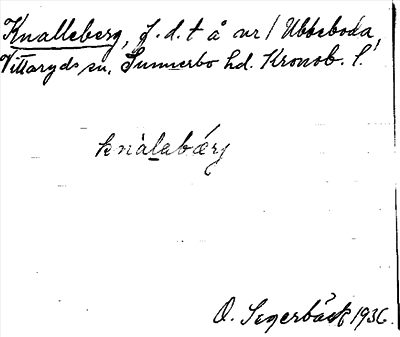 Knalleberg, f.d.t å nr 1 Ubbeboda,
Vittaryds sn, Sunnerbo hd. Kronob. l.
knàlabárj
O. Segerbäck 1936.